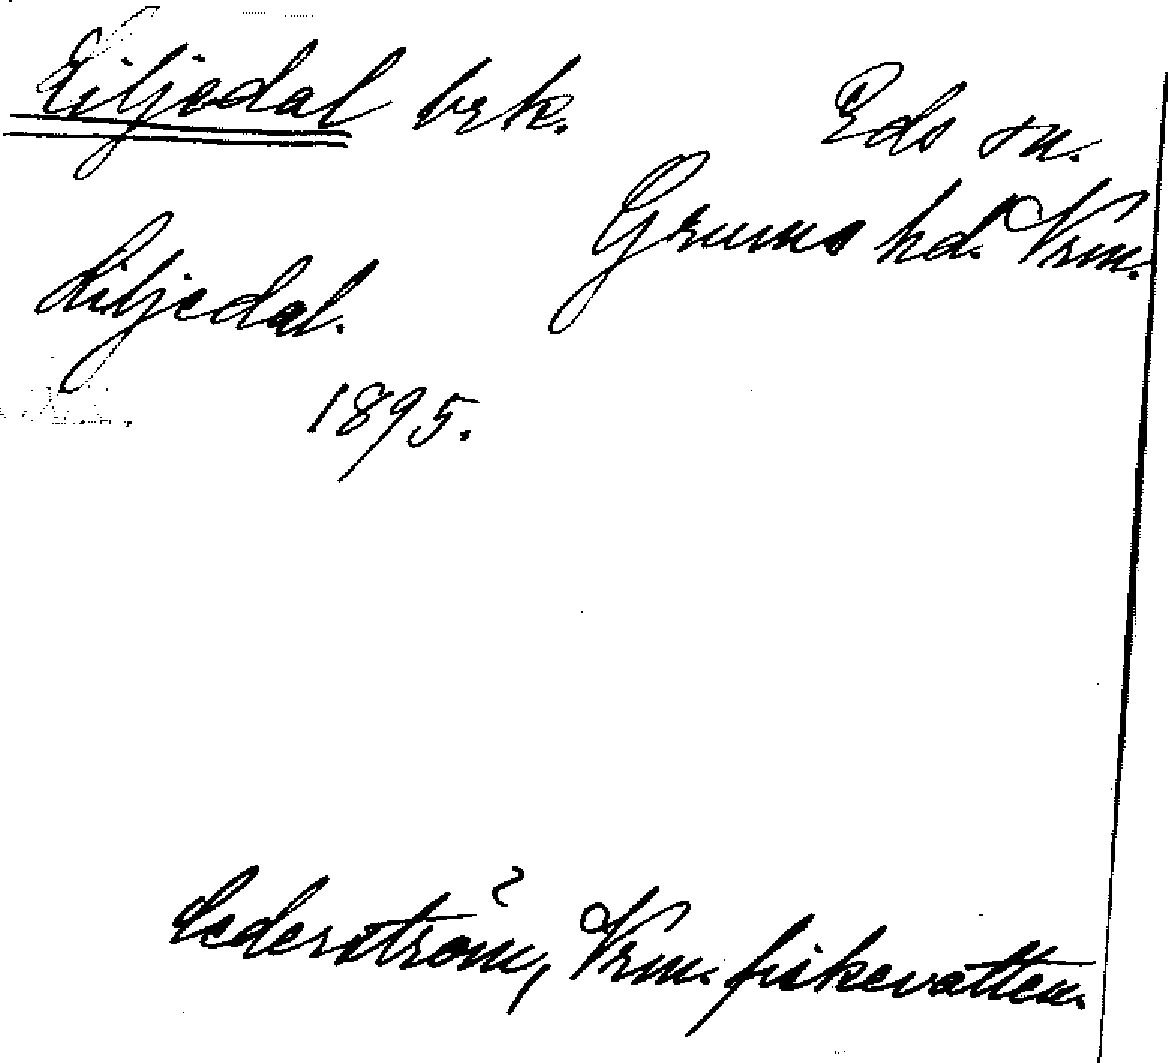 Liljedal brk. Eds sn.
Grums hd. Vrm.
Liljedal.
1895.
Cederström, Vrm. fiskevatten.